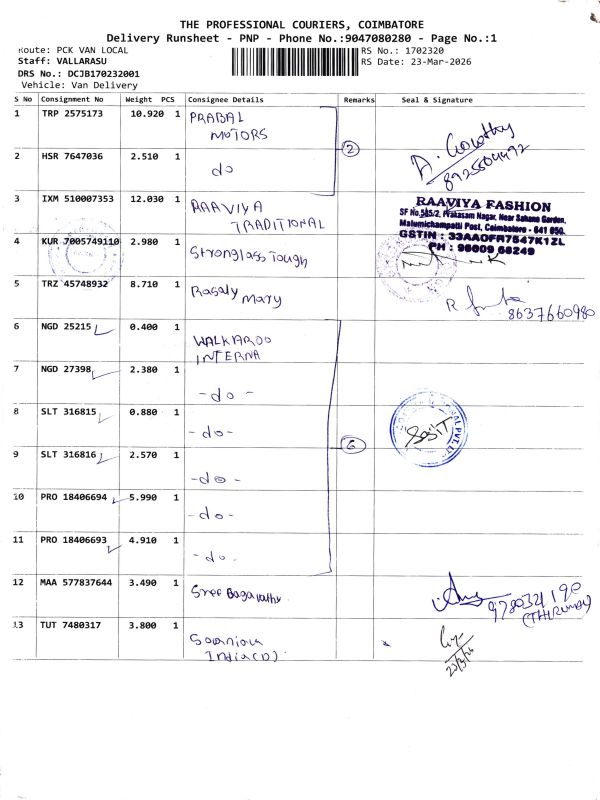 THE PROFESSIONAL COURIERS, COIMBATORE
Delivery Runsheet - PNP - Phone No.:9047080280 - Page No.:1
Route: PCK VAN LOCAL
RS No.: 1702320
Staff: VALLARASU
RS Date: 23-Mar-2026
DRS No.: DCJB170232001
Vehicle: Van Delivery
S No Consignment No Weight PCS Consignee Details Remarks Seal & Signature
1 TRP 2575173 10.920 1 PRABAL MOTORS
2 HSR 7647036 2.510 1 do
2
8925504492
3 IXM 510007353 12.030 1 RAAVIYA TRADITIONAL
RAAVIYA FASHION
SF No.585/2, Prakasam Nagar, Near Sahana Garden,
Malumichampatti Post, Coimbatore - 641 050.
GSTIN : 33AAOFR7547K1ZL
PH : 96009 68249
4 KUR 7005749110 2.980 1 Stronglass Tough
5 TRZ 45748932 8.710 1 Rosaly Mary
8637660980
6 NGD 25215 0.400 1 WALKAROO INTERNA
7 NGD 27398 2.380 1 - do -
8 SLT 316815 0.880 1 - do -
9 SLT 316816 2.570 1 - do -
6
10 PRO 18406694 5.990 1 - do -
11 PRO 18406693 4.910 1 - do.
12 MAA 577837644 3.490 1 Sree Bagavathy
(THIRUMAL)
13 TUT 7480317 3.800 1 India(D)
23/3/26